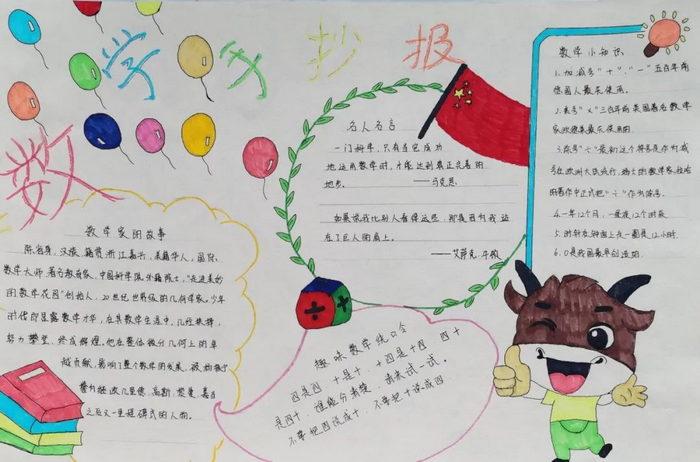 数学手抄报
数学家的故事
陈省身，汉族，籍贯浙江嘉兴，美籍华人，国际
数学大师、著名教育家，中国科学院外籍院士，“走进美妙
的数学花园”创始人，20世纪世界级的几何学家，少年
时代即显露数学才华，在其数学生涯中，几经抉择，
努力攀登，终成辉煌，他在整体微分几何上的卓
越贡献，影响了整个数学的发展，被杨振宁
誉为继欧几里德、高斯、黎曼、嘉当
之后又一里程碑式的人物。
名人名言
一门科学，只有当它成功
地运用数学时，才能达到真正完善的
地步。 ——马克思
如果说我比别人看得远些，那是因为我站
在了巨人的肩上。
——艾萨克·牛顿
趣味数学绕口令
四是四 十是十 十四是十四 四十
是四十，谁能分清楚，请来试一试。
不要把四说成十，不要把十说成四
数学小知识
1.加减号“+”，“-”五百年前
德国人最先使用。
2.乘号“×”三百年前英国著名数学
家欧德莱最先使用的
4.一年12个月，一昼夜12个时辰
5.时针在钟面上走一圈是12小时
6.0是我国最早创造的